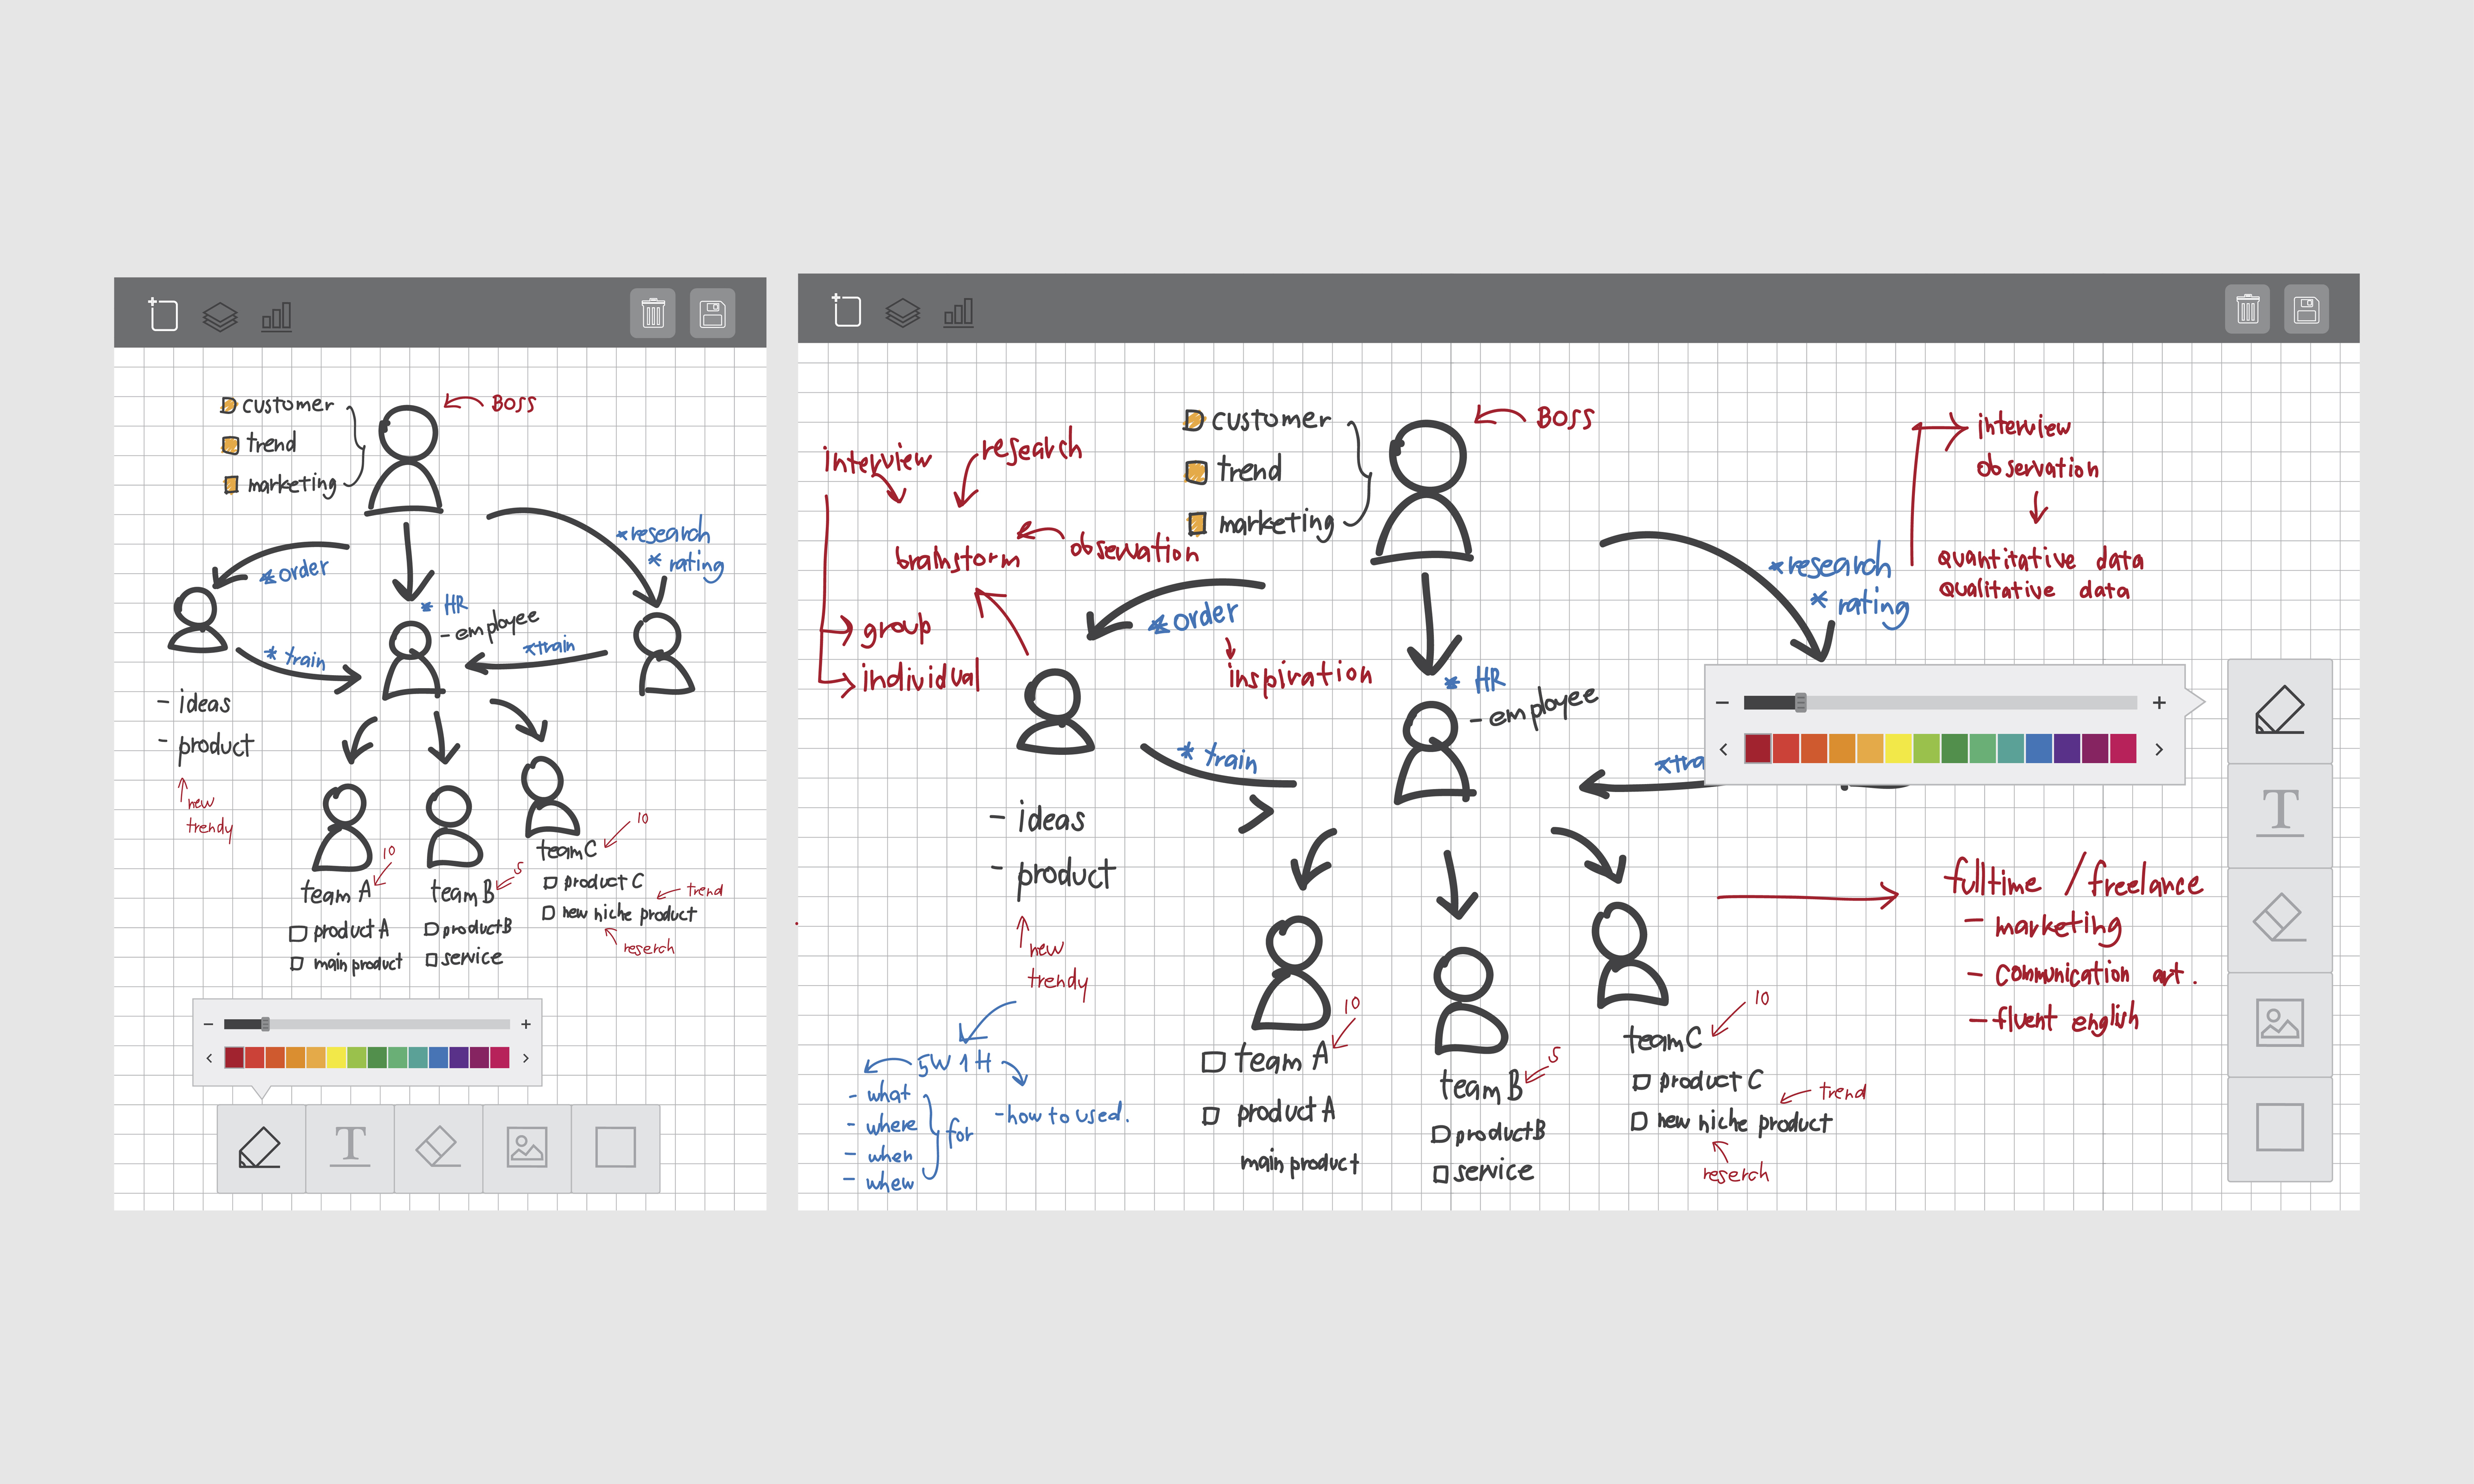 customer
BOSS
trend
marketing
*research
* rating
*order
* HR
- employee
* train
*train
- ideas
- product
new
trendy
10
team A
5
team B
10
team C
product A
main product
product B
service
product C
trend
new niche product
reserch
- +
< >
T
interview
research
brainstorm
observation
group
individual
customer
trend
marketing
BOSS
interview
observation
quantitative data
Qualitative data
*order
inspiration
*research
* rating
* HR
- employee
* train
*tra
- +
< >
T
- ideas
- product
new
trendy
5W 1H
- what
- where
- when
- whew
for
- how to used.
10
team A
product A
main product
5
team B
product B
service
10
team C
product C
trend
new niche product
reserch
fulltime / freelance
- marketing
- communication art.
- fluent english